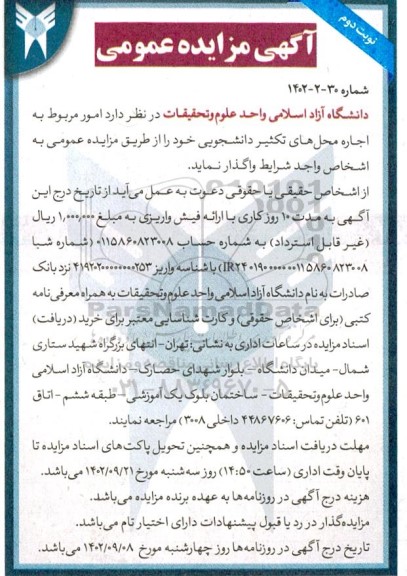 نوبت دوم
آگهی مزایده عمومی
شماره ۳۰-۲-۱۴۰۲
دانشگاه آزاد اسلامی واحد علوم وتحقیقات در نظر دارد امور مربوط به
اجاره محل‌های تکثیر دانشجویی خود را از طریق مزایده عمومی به
اشخاص واجد شرایط واگذار نماید.
از اشخاص حقیقی یا حقوقی دعوت به عمل می‌آید از تاریخ درج این
آگهی به مدت ۱۰ روز کاری با ارائه فیش واریزی به مبلغ ۱,۰۰۰,۰۰۰ ریال
(غیر قابل استرداد) به شماره حساب ۰۱۱۵۸۶۰۸۲۳۰۰۸ (شماره شبا
IR۲۴۰۱۹۰۰۰۰۰۰۰۱۱۵۸۶۰۸۲۳۰۰۸) با شناسه واریز ۴۱۹۲۰۲۰۰۰۰۰۰۰۰۲۵۳ نزد بانک
صادرات به نام دانشگاه آزاد اسلامی واحد علوم وتحقیقات به همراه معرفی نامه
کتبی (برای اشخاص حقوقی) و کارت شناسایی معتبر برای خرید (دریافت)
اسناد مزایده در ساعات اداری به نشانی: تهران- انتهای بزرگراه شهید ستاری
شمال- میدان دانشگاه - بلوار شهدای حصارک- دانشگاه آزاد اسلامی
واحد علوم وتحقیقات - ساختمان بلوک یک آموزشی - طبقه ششم - اتاق
۶۰۱ (تلفن تماس: ۴۴۸۶۷۶۰۶ داخلی ۳۰۰۸) مراجعه نمایند.
مهلت دریافت اسناد مزایده و همچنین تحویل پاکت‌های اسناد مزایده تا
پایان وقت اداری (ساعت ۱۴:۵۰) روز سه شنبه مورخ ۱۴۰۲/۰۹/۲۱ می‌باشد.
هزینه درج آگهی در روزنامه‌ها به عهده برنده مزایده می‌باشد.
مزایده‌گذار در رد یا قبول پیشنهادات دارای اختیار تام می‌باشد.
تاریخ درج آگهی در روزنامه‌ها روز چهارشنبه مورخ ۱۴۰۲/۰۹/۰۸ می‌باشد.